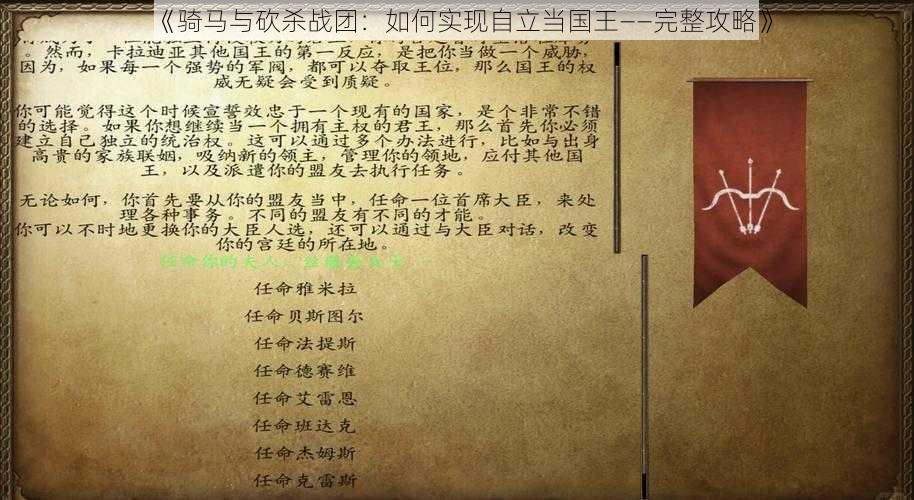 《骑马与砍杀战团：如何实现自立当国王——完整攻略》
。然而，卡拉迪亚其他国王的第一反应，是把你当做一个威胁，
因为，如果每一个强势的军阀，都可以夺取王位，那么国王的权
威无疑会受到质疑。
你可能觉得这个时候宣誓效忠于一个现有的国家，是个非常不错
的选择。如果你想继续当一个拥有主权的君王，那么首先你必须
建立自己独立的统治权。这可以通过多个办法进行，比如与出身
高贵的家族联姻，吸纳新的领主，管理你的领地，应付其他国
王，以及派遣你的盟友去执行任务。
无论如何，你首先要从你的盟友当中，任命一位首席大臣，来处
理各种事务。不同的盟友有不同的才能。
你可以不时地更换你的大臣人选，还可以通过与大臣对话，改变
你的宫廷的所在地。
任命你的夫人，
任命雅米拉
任命贝斯图尔
任命法提斯
任命德赛维
任命艾雷恩
任命班达克
任命杰姆斯
任命克雷斯